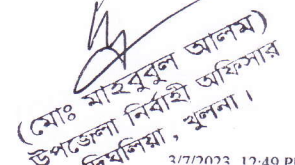 (মোঃ মাহবুবুল আলম)
উপজেলা নির্বাহী অফিসার
দিঘলিয়া, খুলনা।
3/7/2023 12:49 P